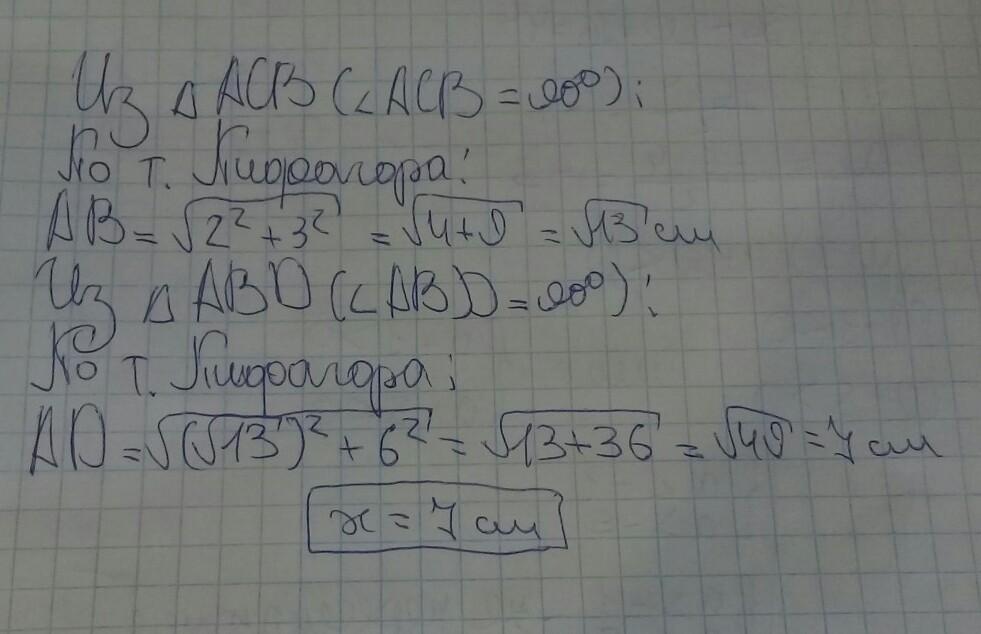 Из △ ACB (∠ACB = 90°):
По т. Пифагора:
AB = √(2² + 3²) = √(4+9) = √13 см
Из △ ABD (∠ABD = 90°):
По т. Пифагора:
AD = √((√13)² + 6²) = √(13+36) = √49 = 7 см
x = 7 см